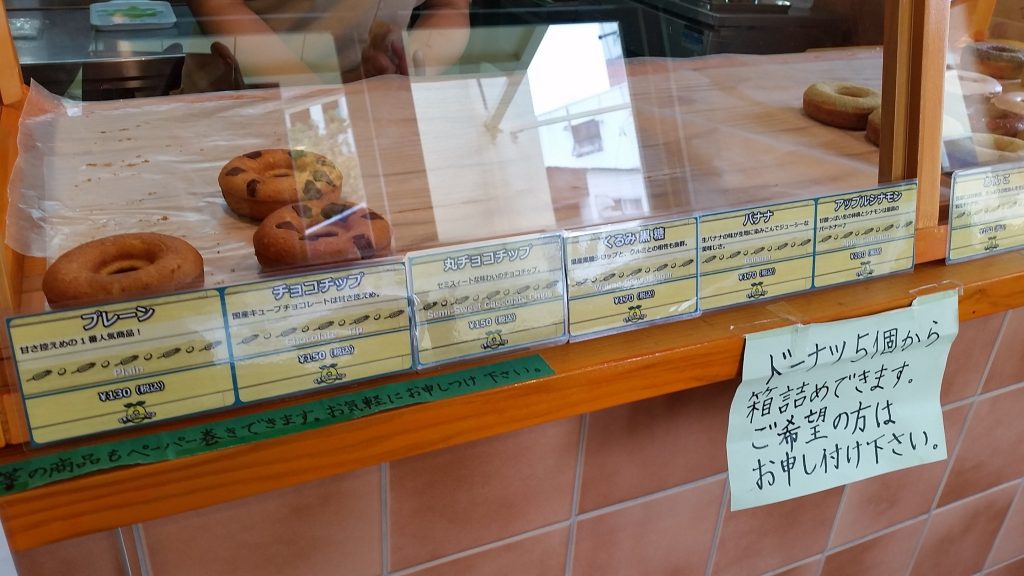 プレーン
甘さ控えめの1番人気商品！
Plain
¥130 (税込)
チョコチップ
国産キューブチョコレートは甘さ控えめ。
Chocolate Chip
¥150 (税込)
丸チョコチップ
セミスイートな味わいのチョコチップ。
Semi-Sweet Chocolate Chips
¥150 (税込)
くるみ黒糖
国産黒糖シロップと、クルミとの相性も抜群。
¥170 (税込)
バナナ
生バナナの味が生地に染みこんでジューシーな
美味しさ。
Banana
¥170 (税込)
アップルシナモン
甘酸っぱい北の林檎とシナモンは最高の
パートナー♪
Apple Cinnamon
(税込)
あんこ
(税込)
の商品もペーパー巻きできます。お気軽にお申しつけ下さい。
ドーナツ5個から
箱詰めできます。
ご希望の方は
お申し付け下さい。